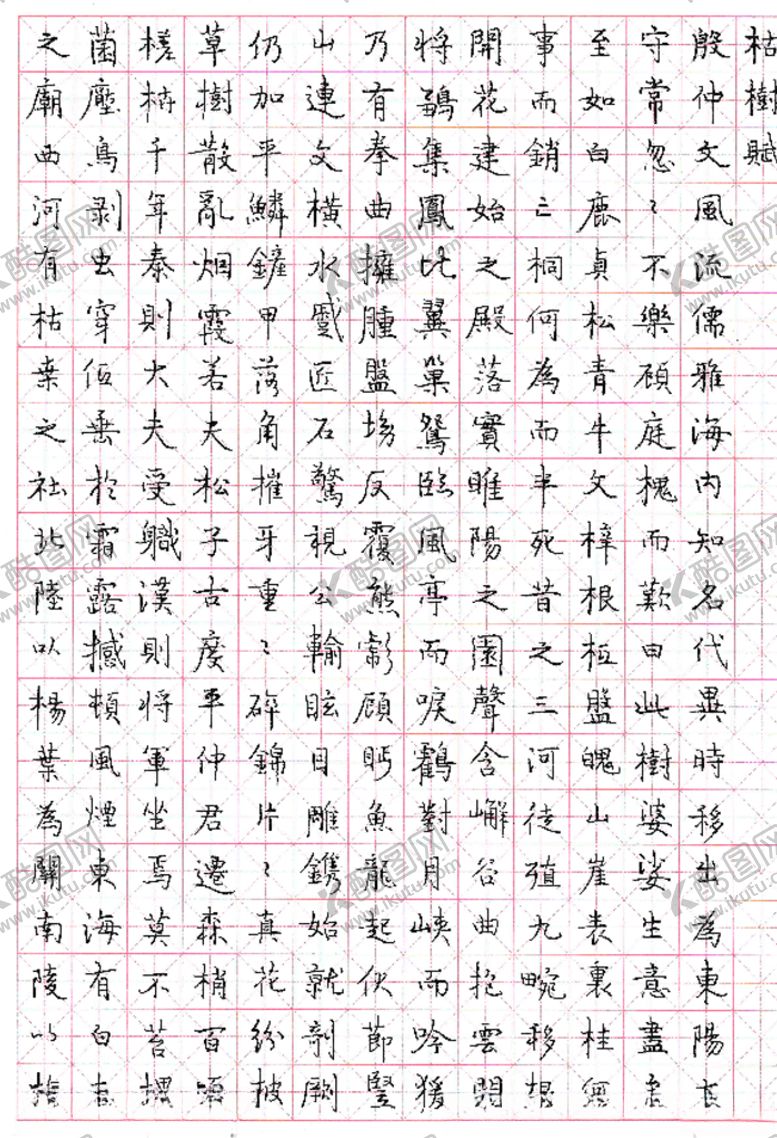 枯樹賦
殷仲文風流儒雅海内知名代異時移出為東陽
守常忽〻不樂顧庭槐而歎曰此樹婆娑生意盡
至如白鹿貞松青牛文梓根柢盤魄山崖表裏桂
事而銷亡桐何為而半死昔之三河徙殖九畹移根
開花建始之殿落實睢陽之園聲含嶰谷曲抱雲門
將鶵集鳳比翼巢鴛臨風亭而唳鶴對月峽而吟猨
乃有拳曲擁腫盤坳反覆熊彪顧眄魚龍起伏節豎
山連文橫水蹙匠石驚視公輸眩目雕鐫始就剞劂
仍加平鱗鏟甲落角摧牙重〻碎錦片〻真花紛披
草樹散亂烟霞若夫松子古度平仲君遷森梢百
槎枿千年秦則大夫受職漢則將軍坐焉莫不苔
菌壓鳥剥虫穿低垂於霜露撼頓風煙東海有白
之廟西河有枯桑之社北陸以楊葉為關南陵以
酷图网
www.ikutu.com